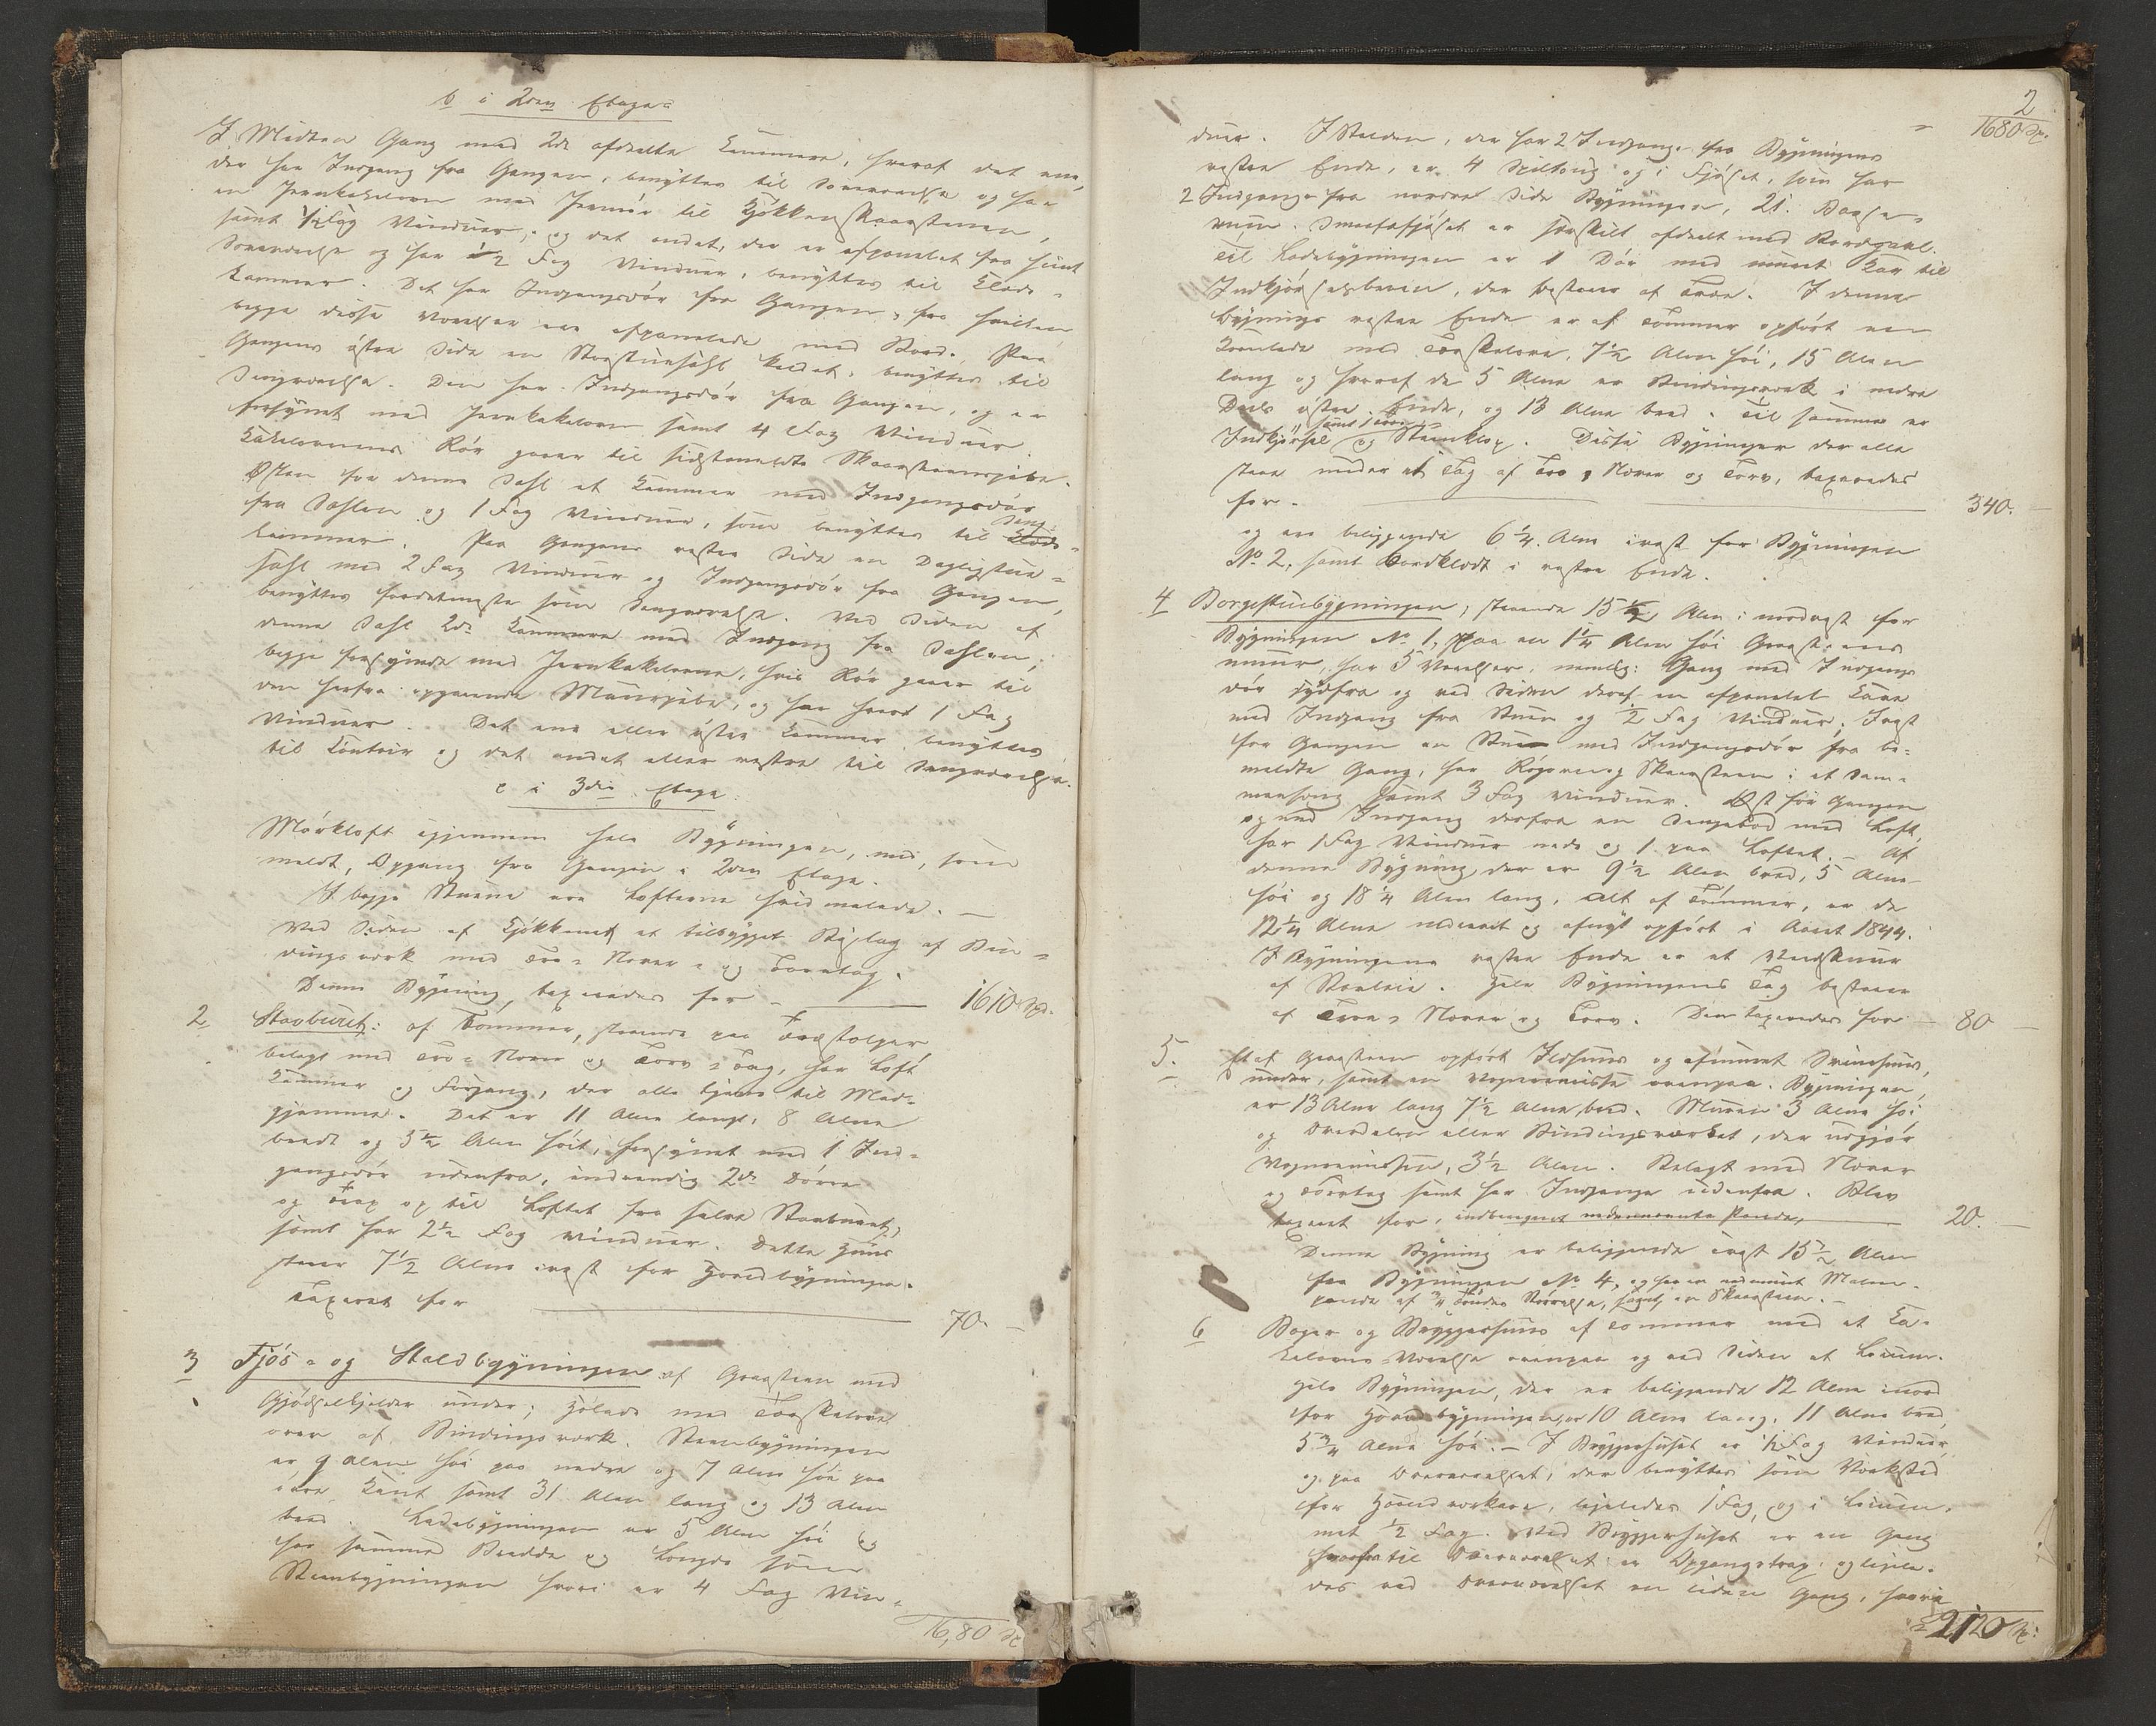 b i 2den Etage
I Midten Gang med 2de afdeelte Kammere, hvoraf det ene,
der har Indgang fra Gangen, benyttes til Soveværelse og har
en Jernkakelovn med Jernrör til Kjökkenskorsstenen,
samt 1/2 Fag Vinduer, og det andet, der er afpanelet fra sidst
Soveværelse og har 1/2 Fag Vinduer, benyttes til Klæde-
kammer. Det har Indgangsdör fra Gangen, fra hvilken
begge disse Værelser ere afpanelede med Bord. Paa
Gangens östre Side en Storstuesahl kaldet, benyttes til
Sengeværelse. Den har Indgangsdör fra Gangen, og er
forsynet med Jernkakelovn samt 4 Fag Vinduer.
Kakelovnens Rör gaaer til sidstomeldte Skorsteenspibe.
Østen for denne Sahl et Kammer med Indgangsdör
fra Sahlen og 1 Fag Vinduer, som benyttes til Klæde-
Seng-
kammer. Paa Gangens vestre Side en Dagligstue-
sahl med 2 Fag Vinduer og Indgangsdör fra Gangen,
benyttes fordetmeste som Sengeværelse. Ved Siden af
denne Sahl 2de Kammere med Indgang fra Sahlen,
begge forsynede med Jernkakelovne, hvis Rör gaaer til
den herfra opgaaende Muurpibe, og har hvert 1 Fag
Vinduer. Det ene eller östre Kammer benyttes
til Contoir og det andet eller vestre til Sengeværelse.
c i 3die Etage.
Mörkloft igjennem hele Bygningen, med, som
meldt, Opgang fra Gangen i 2den Etage.
I begge Stuerne ere Lofterne hvidmalede. —
Ved Siden af Kjökkenet et tilbygget Bislag af Bin-
dingsværk med Træ- Næver- og Torvtag.
Denne Bygning taxeredes for — 1610 Spd.
2 Stavburet: af Tömmer, staaende paa Træstolper
belagt med Træ- Næver og Torv-Tag, har Loft
Kammer og Forgang, der alle tjene til Mad-
gjemme. Det er 11 Alen langt, 8 Alen
bredt og 5 1/2 Alen höit, forsynet med 1 Ind-
gangsdör udenfra, indvendig 2de Dörre
og Trap op til Loftet fra selve Stavburet,
samt har 2 1/2 Fag Vinduer. Dette Huus
staaer 7 1/2 Alen ivest for Hovedbygningen.
Taxeret for — 70. —
3 Fjös- og Staldbygningen af Graasteen med
Gjödselkjelder under; Hölade med Træskelove
over af Bindingsværk. Steenbygningen
er 9 Alen höi paa nedre og 7 Alen höi paa
övre Kant samt 31 Alen lang og 13 Alen
bred. Ladebygningen er 5 Alen höi og
har samme Bredde og Længde som
Steenbygningen hvori er 4 Fag Vin-
1680 Sp
2
1680 Sp.
duer. I Stalden, der har 2 Indgange fra Bygningens
vestre Ende, er 4 Spiltoug og i Fjöset, som har
2 Indgange fra nordre Side Bygningen, 21 Baase-
rum. Smaafæfjöset er særskilt afdeelt med Bordgavl.
Til Ladebygningen er 1 Dör med muret Kar til
Indkjörselsbroen, der bestaaer af Træ. I denne
Bygnings vestre Ende er af Tömmer opfört en
Kornlade med Træskelove, 7 1/2 Alen höi, 15 Alen
lang og hvoraf de 5 Alen er Bindingsværk i nedre
Deels östre Ende, og 13 Alen bred. Til samme er
samt 1 Dör
Indkjörsel og Steenklop. Disse Bygninger der alle
staae under et Tag af Træ, Næver og Torv, taxeredes
for — 340. —
og ere beliggende 6 1/4 Alen ivest for Bygningen
No. 2, samt bordklædt i vestre Ende.
4 Borgestuebygningen, staaende 15 1/2 Alen i nordvest for
Bygningen No. 1, paa en 1 1/4 Alen höi Graasteens
muur, har 5 Værelser, nemlig: Gang med Indgangs
dör sydfra og ved Siden deraf en afpanelet Kove
med Indgang fra Stuen og 1/2 Fag Vinduer; Ivest
for Gangen en Stue med Indgangsdör fra be-
meldte Gang, har Rögovn og Skorsteen i et Sam-
menhæng samt 3 Fag Vinduer. Øst for Gangen
og med Indgang derfra en Sengebod med Loft,
har 1 Fag Vinduer neder og 1 paa Loftet. — Af
denne Bygning, der er 9 1/2 Alen bred, 5 Alen
höi og 18 1/4 Alen lang, alt af Tömmer, er de
12 1/4 Alen nedrevet og afnyt opfört i Aaret 1844.
I Bygningens vestre Ende er et Vedskuur
af Bordvie. Hele Bygningens Tag bestaaer
af Træ, Næver og Torv. Den taxeredes for — 80 —
5. Et af Graasteen opfört Ildhuus og afmuret Sviinehuus,
under, samt en Vognremisse ovenpaa. Bygningen
er 13 Alen lang 7 1/2 Alen bred. Muren 3 Alen höi
og Overdelen eller Bindingsværket, der udgjör
Vognremissen, 3 1/2 Alen. Belagt med Næver
og Torvtag samt har Indgange udenfra. Blev
taxeret for, indberegnet nedennævnte Pande, — 20. —
Denne Bygning er beliggende ivest 15 1/2 Alen
fra Bygningen No. 4, og har en indmuret Malm-
pande af 3/4 Tönder Störrelse, samt en Skorsteen. —
6 Bager og Bryggerhuus af Tömmer med et Ka-
kelovns-Værelse ovenpaa og ved Siden et Locum.
Hele Bygningen, der er beliggende 12 Alen inord
for Hovedbygningen, er 10 Alen lang, 11 Alen bred,
5 3/4 Alen höi. — I Bryggerhuset er 1 1/2 Fag Vinduer,
og paa Overværelset, der benyttes som Værksted
for Haandværkere, ligeledes 1 Fag, og i Locum-
met 1/2 Fag. Ved Bryggerhuset er en Gang
hvorfra til Overværelset er Opgangstrap, og ligele-
des ved Overværelset en liden Gang, hvorved
2120 Sp.